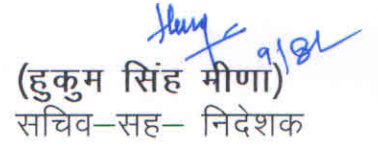 (हुकुम सिंह मीणा)
सचिव–सह– निदेशक